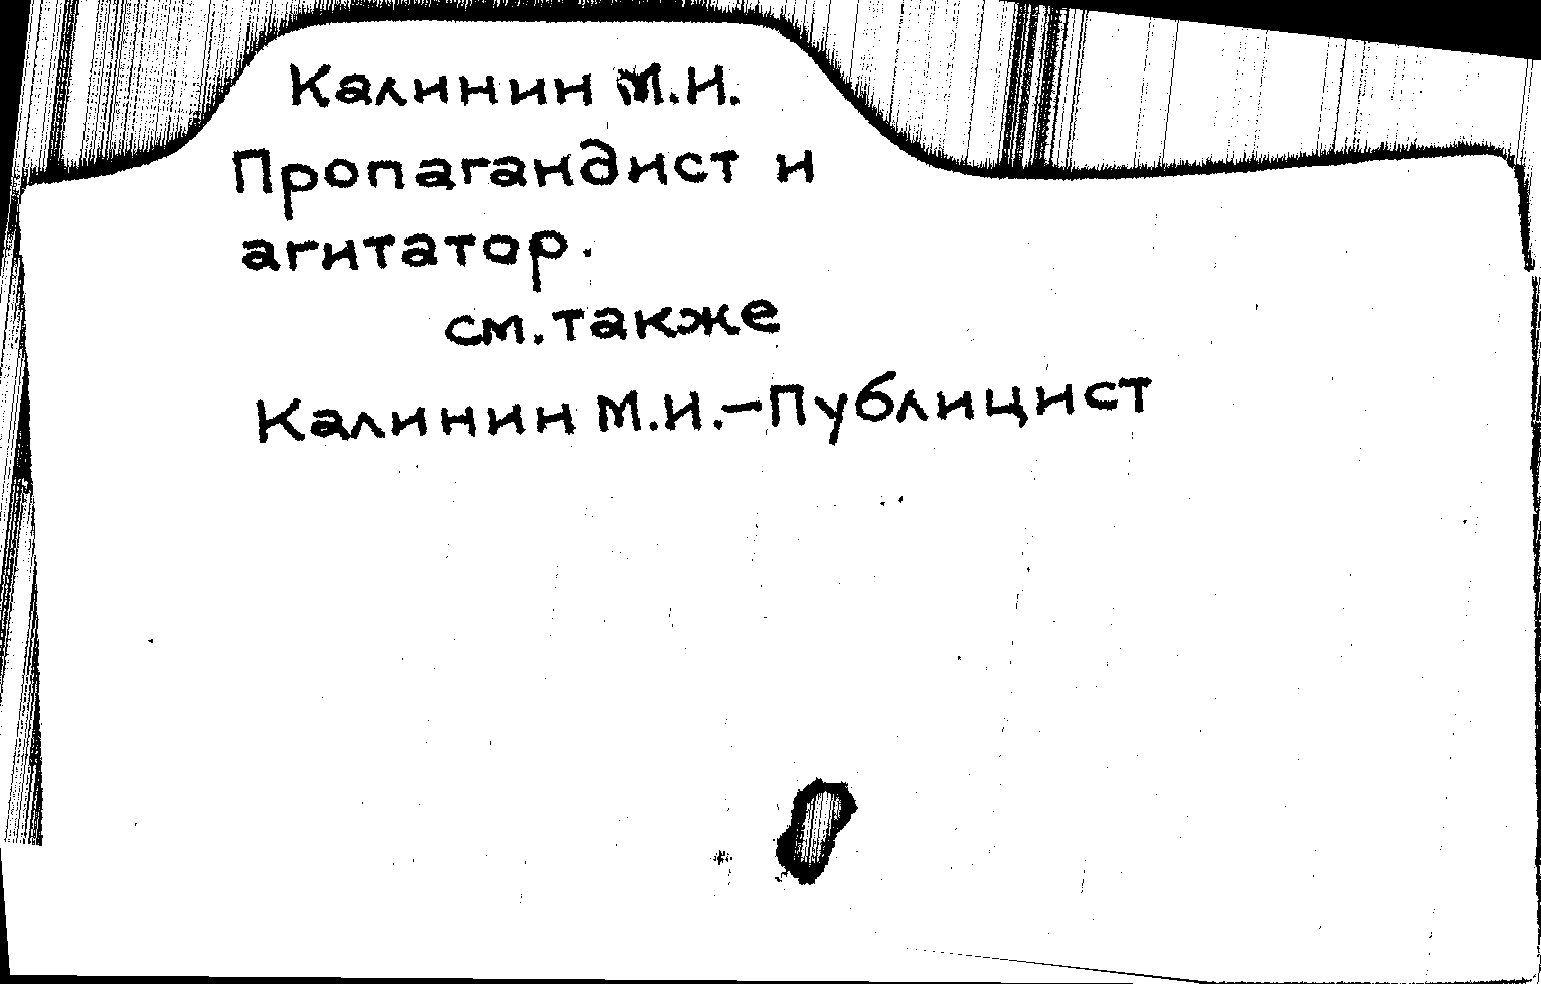 Калинин М.И.
Пропагандист и
агитатор.
см. также
Калинин М.И.-Публицист